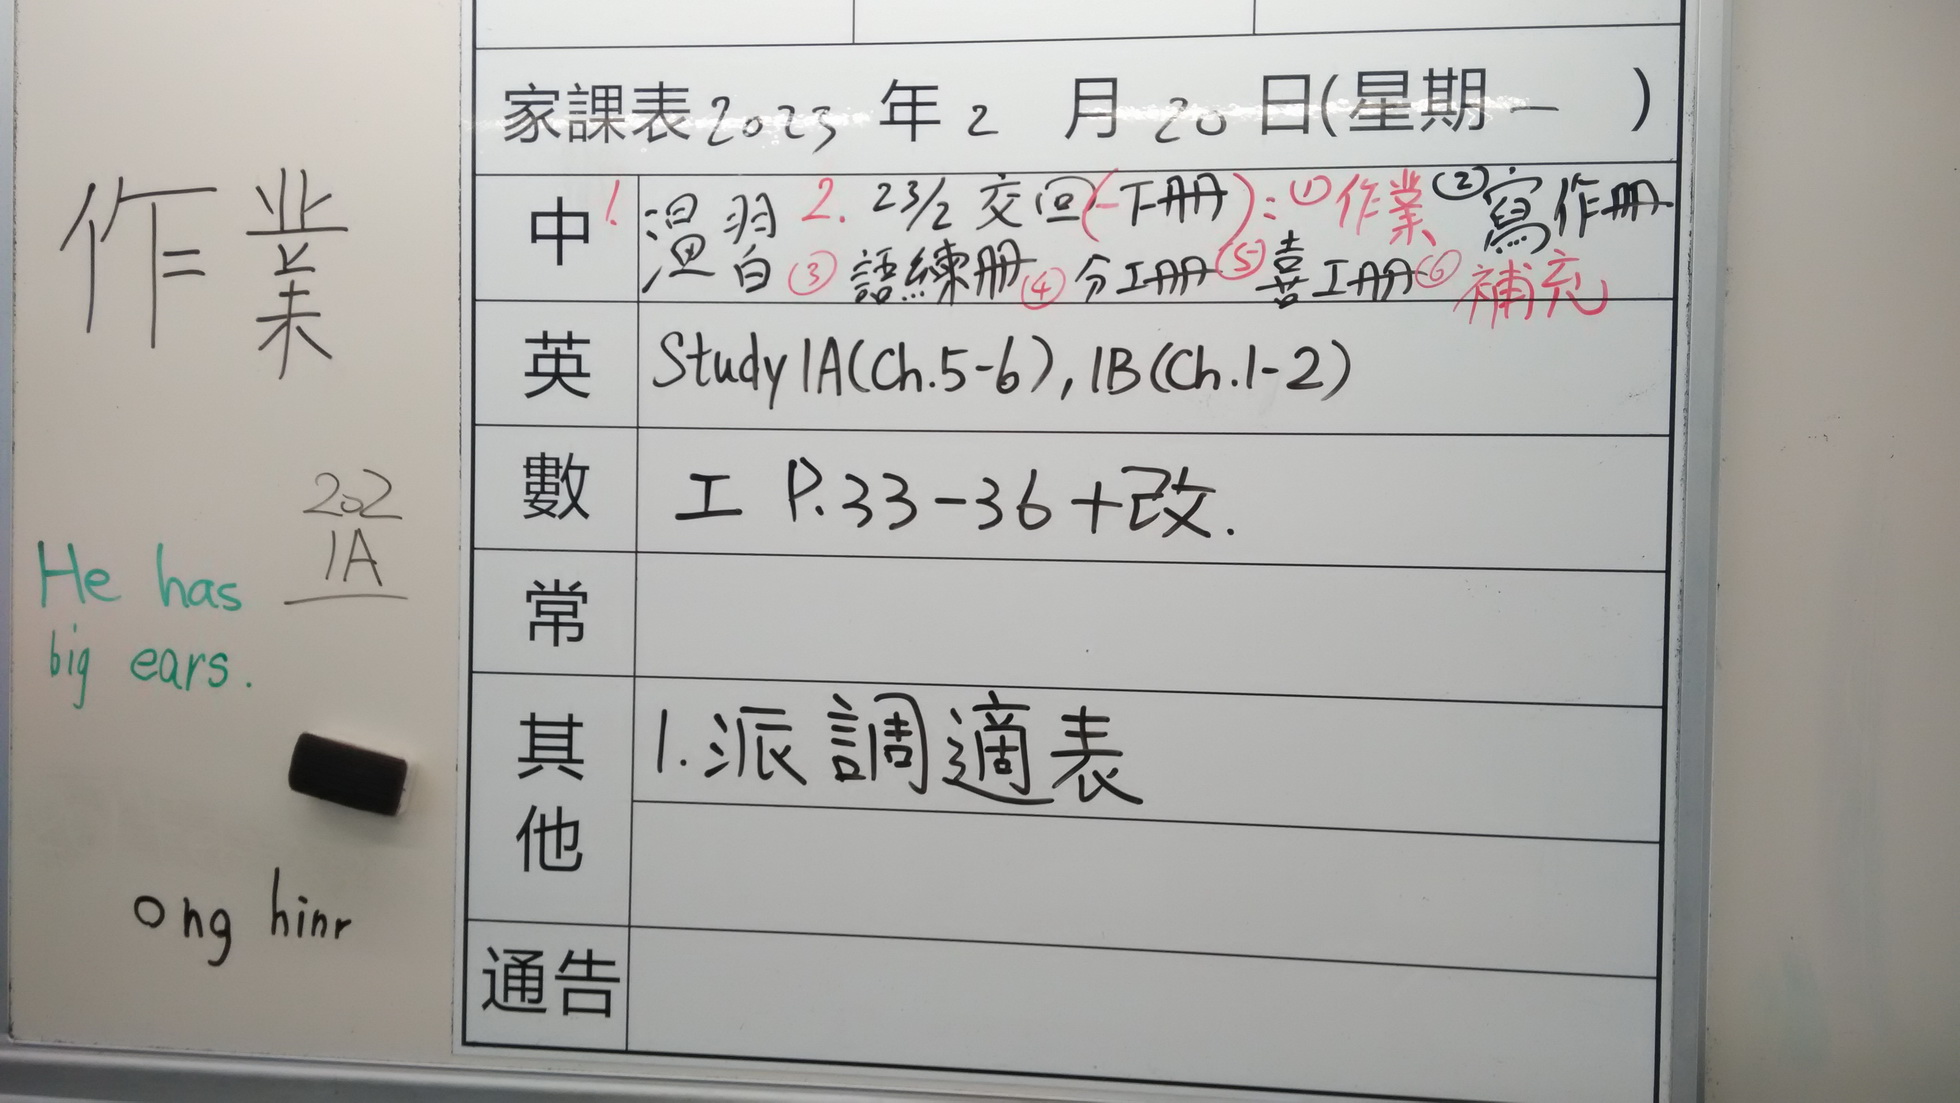 家課表 2023 年 2 月 20 日(星期一 )
作業
中 1. 溫習 2. 23/2 交回(一下冊): ①作業 ②寫作冊
溫 ③語練冊 ④分工冊 ⑤喜工冊 ⑥補充
英 Study 1A(Ch.5-6), 1B(Ch.1-2)
數 工 P.33-36+改.
202
1A
He has
big ears.
常
其他 1. 派調適表
ong hinr
通告